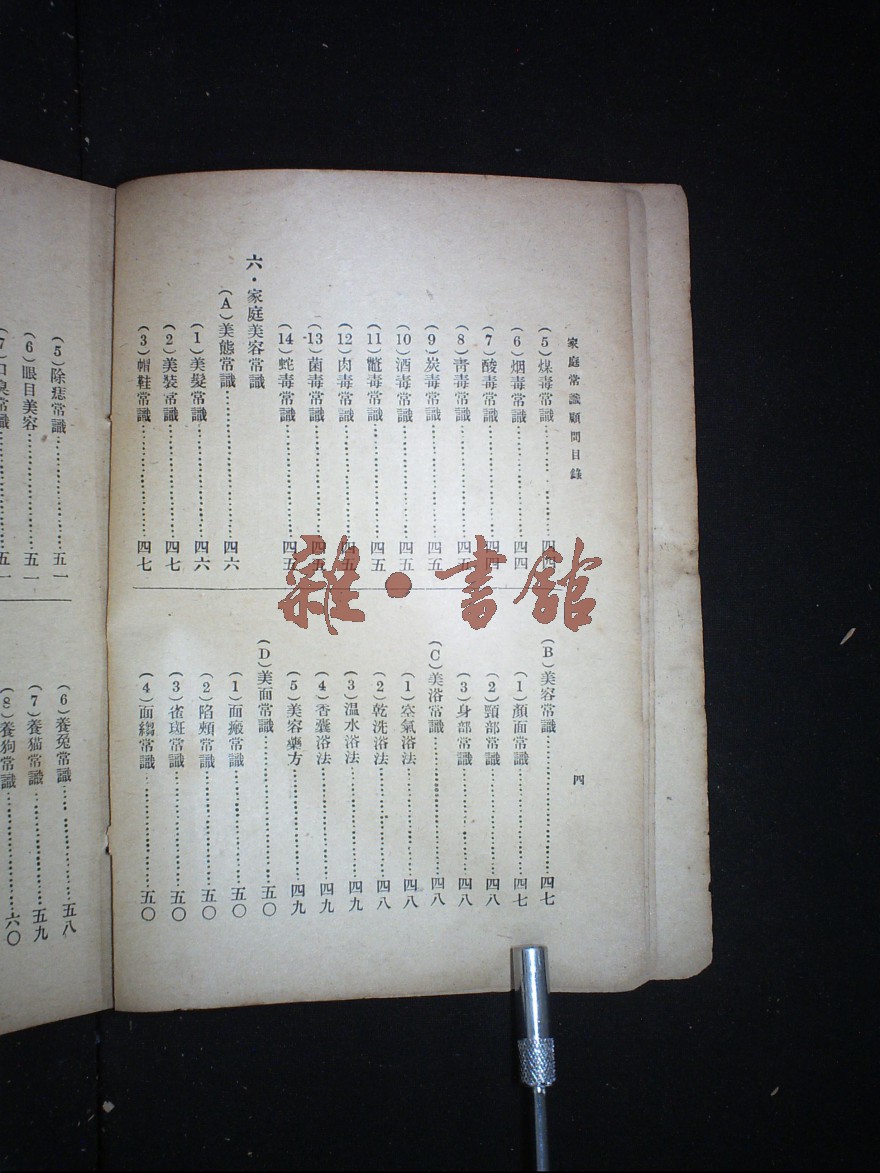 家庭常識顧問目錄
四
(5)煤毒常識……四四
(6)烟毒常識……四四
(7)酸毒常識……四四
(8)青毒常識……四五
(9)炭毒常識……四五
(10)酒毒常識……四五
(11)鼈毒常識……四五
(12)肉毒常識……四五
(13)菌毒常識……四五
(14)蛇毒常識……四五
六・家庭美容常識
(A)美態常識……四六
(1)美髮常識……四六
(2)美裝常識……四七
(3)帽鞋常識……四七
(B)美容常識……四七
(1)顏面常識……四七
(2)頸部常識……四八
(3)身部常識……四八
(C)美浴常識……四八
(1)空氣浴法……四八
(2)乾洗浴法……四八
(3)温水浴法……四九
(4)香囊浴法……四九
(5)美容藥方……四九
(D)美面常識……五〇
(1)面瘢常識……五〇
(2)陷頰常識……五〇
(3)雀斑常識……五〇
(4)面縐常識……五〇
(5)除痣常識……五一
(6)眼目美容……五一
(7)口臭常識……五一
(6)養兔常識……五八
(7)養猫常識……五九
(8)養狗常識……六〇
雜・書館